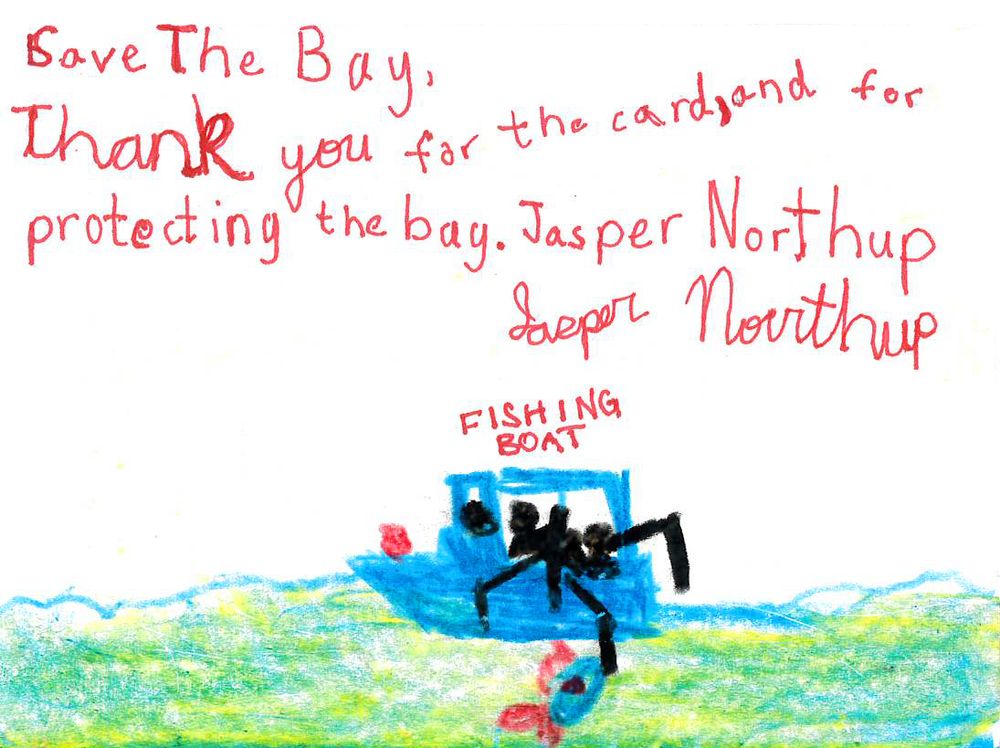 Save The Bay,
Thank you for the card, and for
protecting the bay. Jasper Northup
Jasper Northup
FISHING
BOAT